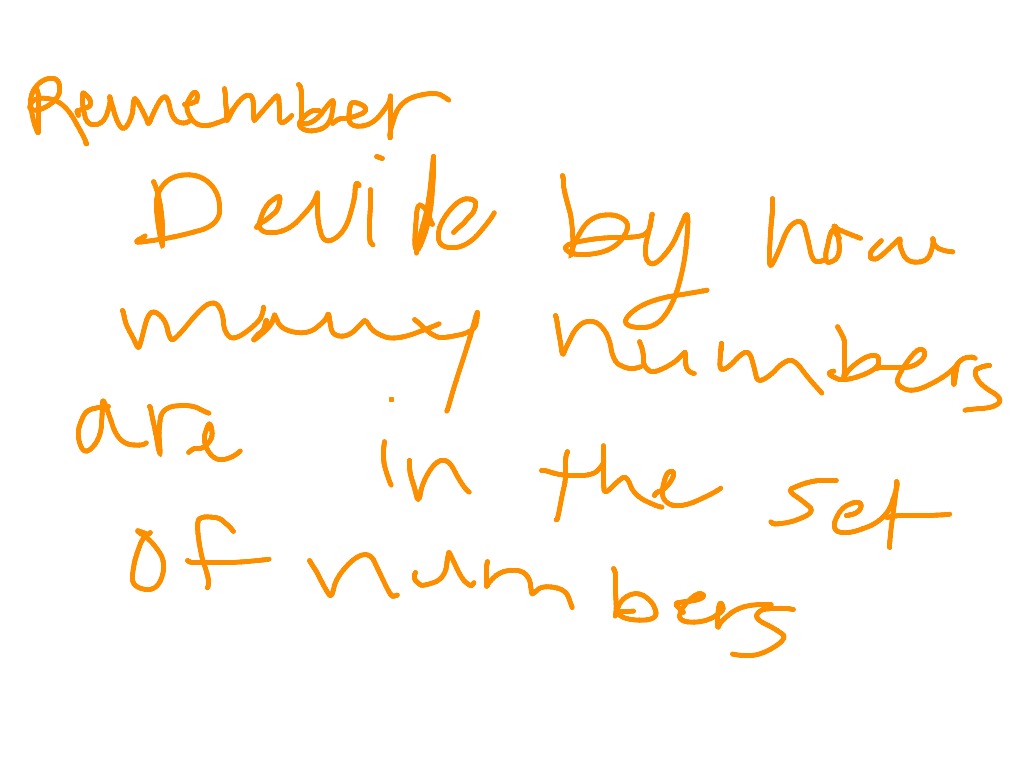 Remember
Devide by how
many numbers
are in the set
of numbers